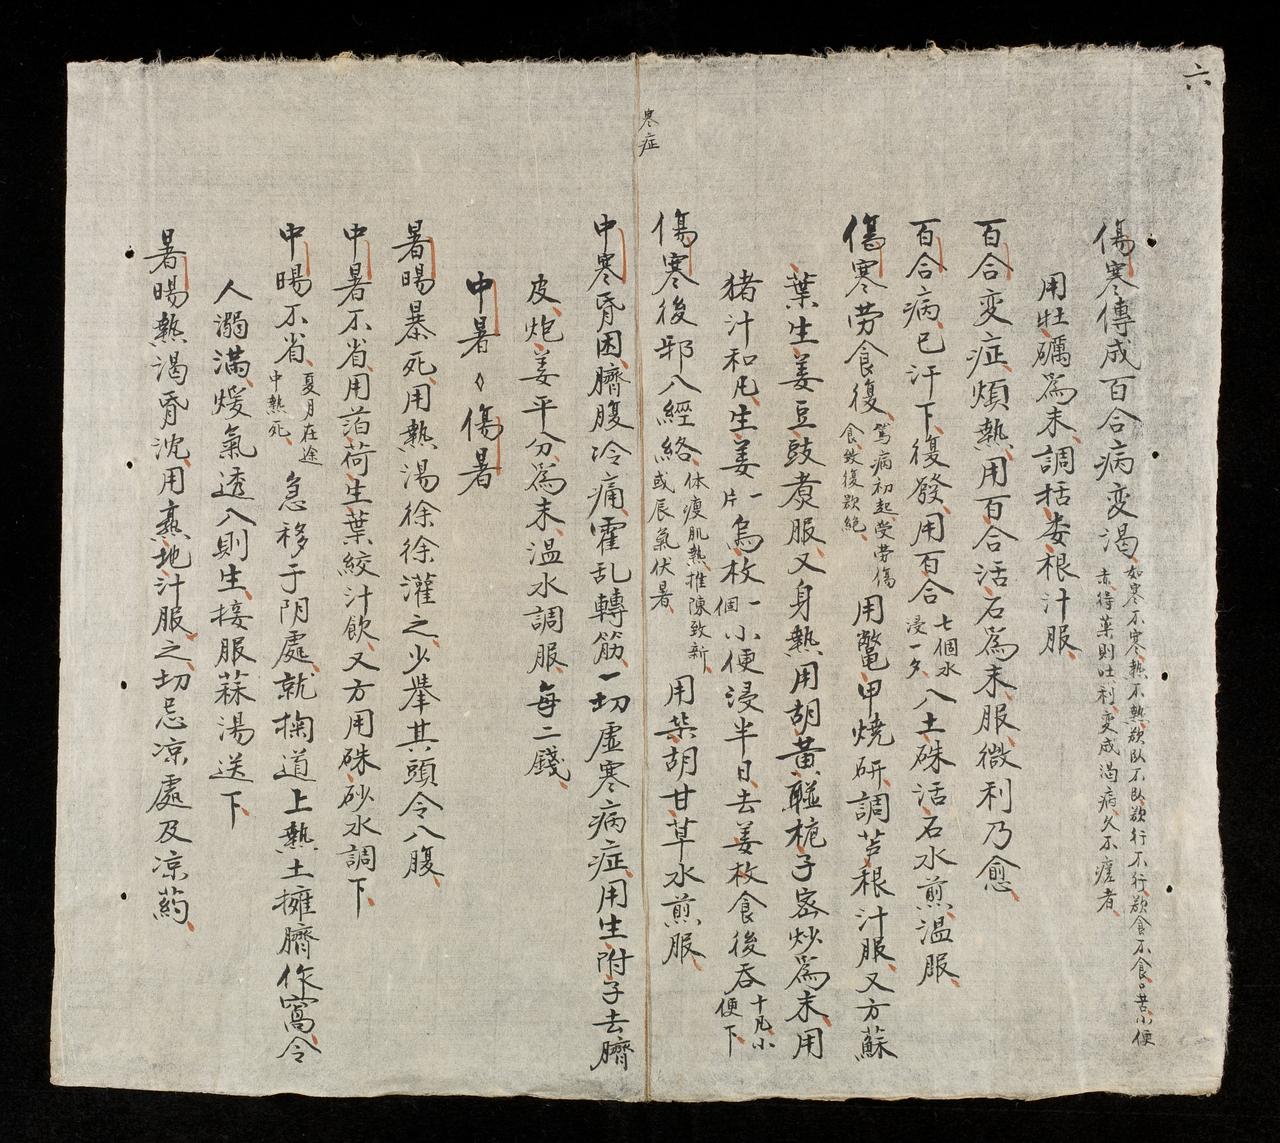 六
傷寒傳成百合病变渴、如寒不寒熱不熱欲臥不臥欲行不行欲食不食口苦小便赤得藥則吐利变成渴病久不瘥者、
用牡礪為末調括娄根汁服、
百合变症煩熱用百合活石為末服微利乃愈、
百合病已汗下復發用百合七個水浸一夕入土硃活石水煎温服
傷寒劳食復篤病初起受劳傷食致復欲絕用鱉甲燒研調芦根汁服又方蘇
葉生姜豆豉煑服又身熱用胡黃連梔子宻炒為末用
猪汁和凡生姜一片烏枚一個小便浸半日去姜枚食後吞十凡小便下
傷寒後邪入經絡体瘦肌熱推陳致新或辰氣伏暑用柴胡甘草水煎服
寒症
中寒昏困臍腹冷痛霍乱轉筋一切虛寒病症用生附子去臍
皮炮姜平分為末温水調服每二錢
中暑 傷暑
暑暍暴死用熱湯徐徐灌之少舉其頭令入腹
中暑不省用萡荷生葉絞汁飲又方用硃砂水調下
中暍不省夏月在途中熱死急移于阴處就掬道上熱土擁臍作窩令
人溺滿煖氣透入則生接服蒜湯送下
暑暍熱渴昏沈用熟地汁服之切忌凉處及凉药